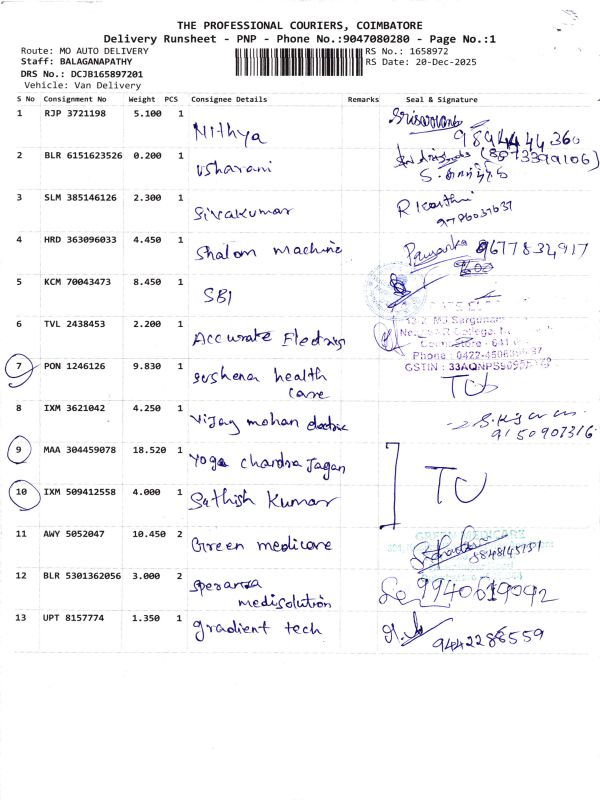 THE PROFESSIONAL COURIERS, COIMBATORE
Delivery Runsheet - PNP - Phone No.:9047080280 - Page No.:1
Route: MO AUTO DELIVERY
RS No.: 1658972
Staff: BALAGANAPATHY
RS Date: 20-Dec-2025
DRS No.: DCJB165897201
Vehicle: Van Delivery
S No Consignment No Weight PCS Consignee Details Remarks Seal & Signature
1 RJP 3721198 5.100 1 Nithya 9894444360
2 BLR 6151623526 0.200 1 Usharani (8973399106)
3 SLM 385146126 2.300 1 Sivakumar R Karthi
4 HRD 363096033 4.450 1 Shalom machine Priyanka 9677832917
5 KCM 70043473 8.450 1 SBI
6 TVL 2438453 2.200 1 Accurate Electricals
Phone : 0422-450
GSTIN : 33AQNPS
7 PON 1246126 9.830 1 Sushena health care TCS
8 IXM 3621042 4.250 1 Vijay mohan electric
9 MAA 304459078 18.520 1 Yoga chandra Jagan
10 IXM 509412558 4.000 1 Sathish Kumar
11 AWY 5052047 10.450 2 Green medicare
GREEN MEDICARE
12 BLR 5301362056 3.000 2 Speranza medisolution 9940619092
13 UPT 8157774 1.350 1 gradient tech 9442288559